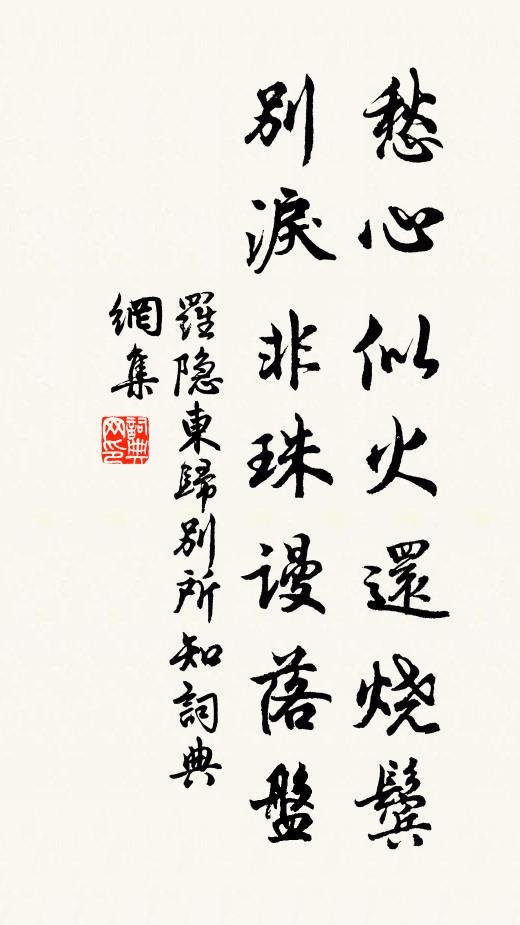 愁心似火還烧鬓
別淚非珠謾落盤
羅隐東歸別所知詞典
網集
詞典
网印